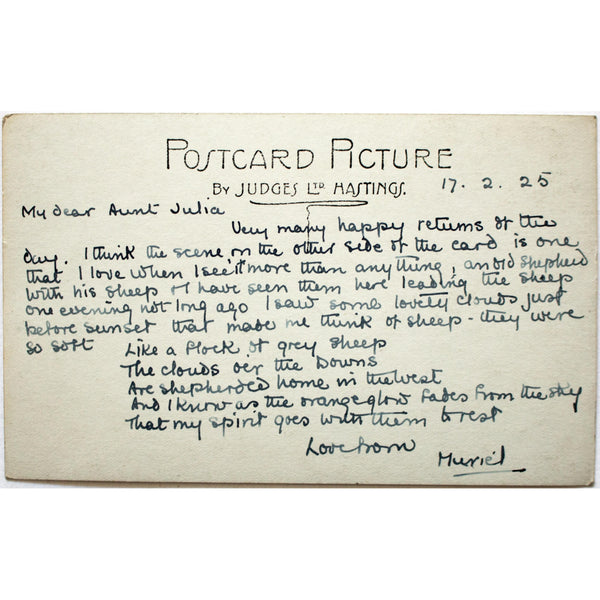 POSTCARD PICTURE
BY JUDGES LTD HASTINGS.
17. 2. 25
My dear Aunt Julia
Very many happy returns of the
day. I think the scene on the other side of the card is one
that I love when I see it more than anything, an old shepherd
with his sheep & I have seen them here leading the sheep
one evening not long ago I saw some lovely clouds just
before sunset that made me think of sheep - they were
so soft
Like a flock of grey sheep
The clouds o'er the Downs
Are shepherded home in the west
And I know as the orange glow fades from the sky
That my spirit goes with them to rest
Love from
Muriel